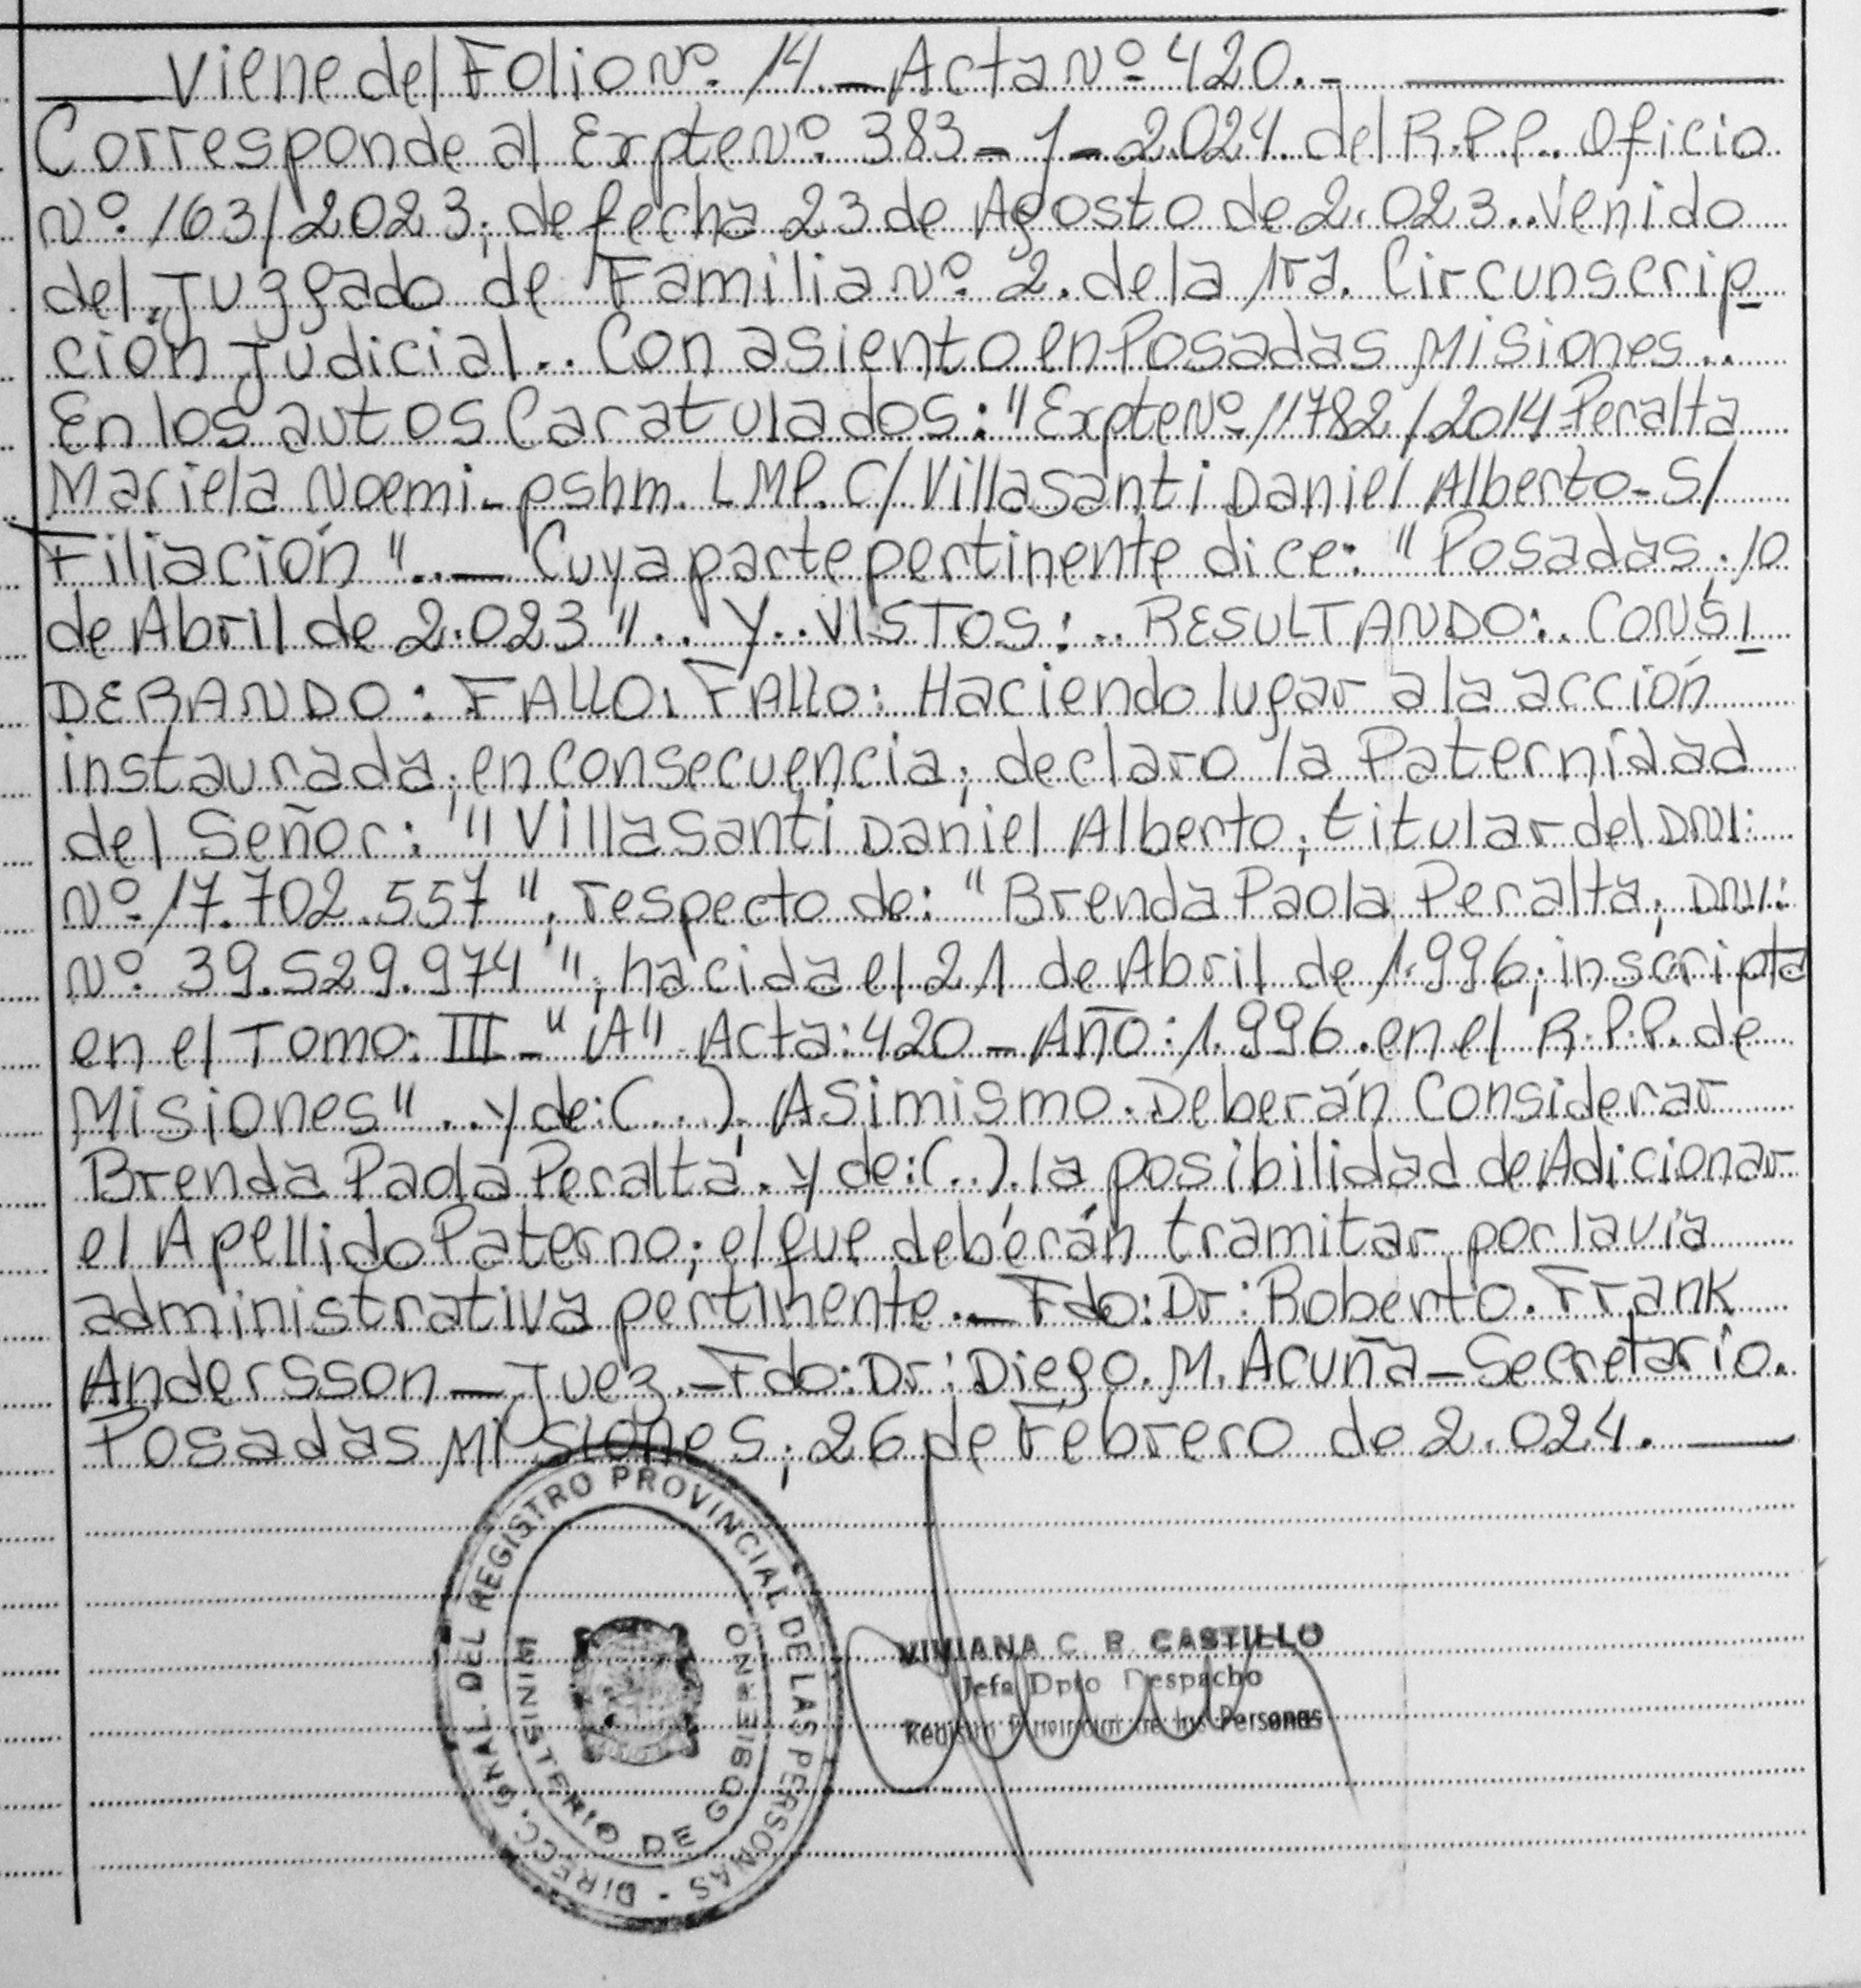 Viene del Folio Nº. 14.- Acta Nº 420.-
Corresponde al Expte Nº 383-Y-2024. del R.P.P. Oficio
Nº. 163/2023; de fecha 23 de Agosto de 2.023.. Venido
del Juzgado de Familia Nº 2. de la 1ra. Circunscrip
ción Judicial.. Con asiento en Posadas Misiones..
En los autos Caratulados: "Expte Nº 11782/2014 Peralta
Mariela Noemi- pshm. LMP. C/ Villasanti Daniel Alberto- S/
Filiación".._ Cuya parte pertinente dice: "Posadas, 10
de Abril de 2.023".. Y.. VISTOS:.. RESULTANDO:. CONSI
DERANDO: FALLO: FALLO: Haciendo lugar a la acción
instaurada; en Consecuencia; declaro la Paternidad
del Señor: "Villasanti Daniel Alberto; titular del DNI:
Nº 17.702.557", respecto de: "Brenda Paola Peralta; DNI:
Nº 39.529.974"; nacida el 21 de Abril de 1.996; inscripta
en el Tomo: III - "A" Acta: 420 - Año: 1.996. en el R.P.P. de
Misiones".. y de: (...). Asimismo. Deberán Considerar
Brenda Paola Peralta. y de: (..). la posibilidad de Adicionar
el Apellido Paterno; el que deberán tramitar por la vía
administrativa pertinente._ Fdo: Dr: Roberto. Frank
Andersson - Juez.- Fdo: Dr: Diego. M. Acuña - Secretario.
Posadas Misiones; 26 de Febrero de 2.024.
DIRECC. GRAL. DEL REGISTRO PROVINCIAL DE LAS PERSONAS -
MINISTERIO DE GOBIERNO
VIVIANA C. R. CASTILLO
Jefa Dpto Despacho
Registro Provincial de las Personas